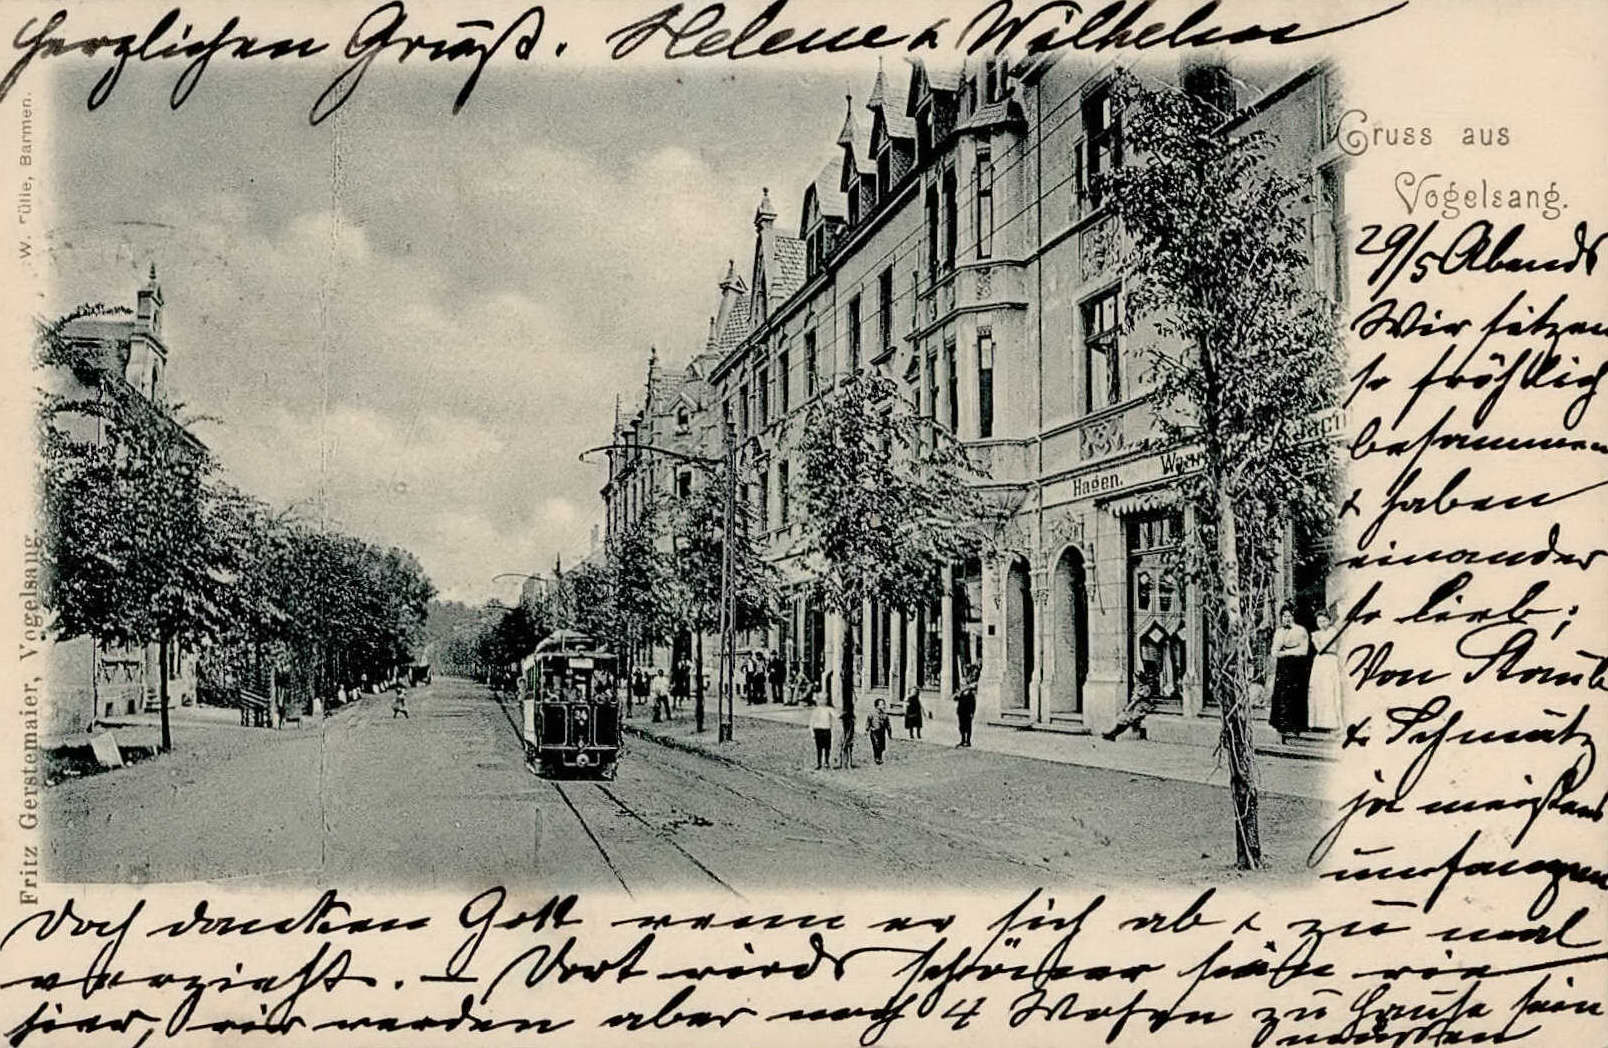 Herzlichen Gruß. Helene & Wilhelm
W. Fülle, Barmen.
Gruss aus
Vogelsang.
29/5 Abends
Wir sitzen
so fröhlich
beisammen
& haben
einander
so lieb;
Von Staub
& Schmutz
ja meistens
umfangen
Doch danken Gott wenn er sich ab & zu mal
verzieht. – Dort wirds schöner sein wie
hier, wir werden aber nach 4 Wochen zu Hause sein
müssen
Hagen.
Fritz Gerstemaier, Vogelsang.